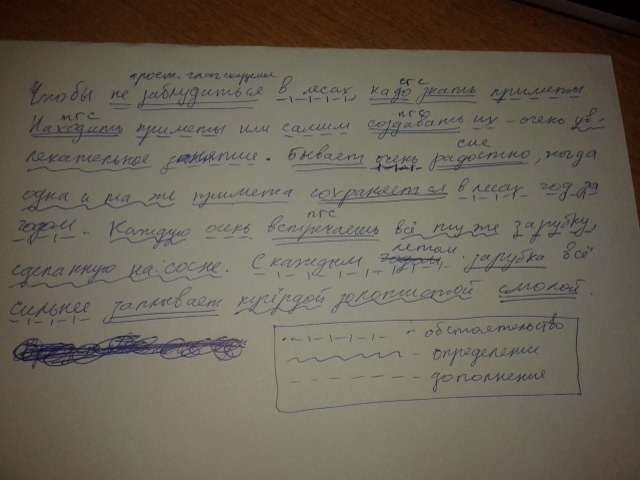 прост. глаг сказуемое
Чтобы не заблудиться в лесах, надо знать приметы.
сгс
Находить приметы или самим создавать их - очень ув-
пгс пгс
лекательное занятие. Бывает очень радостно, когда
сис
одна и та же примета сохраняется в лесах год за
годом. Каждую осень встречаешь всё ту же зарубку,
пгс
сделанную на сосне. С каждым летом зарубка всё
сильнее заплывает кучёрдой золотистой смолой.
- обстоятельство
- определение
- дополнение